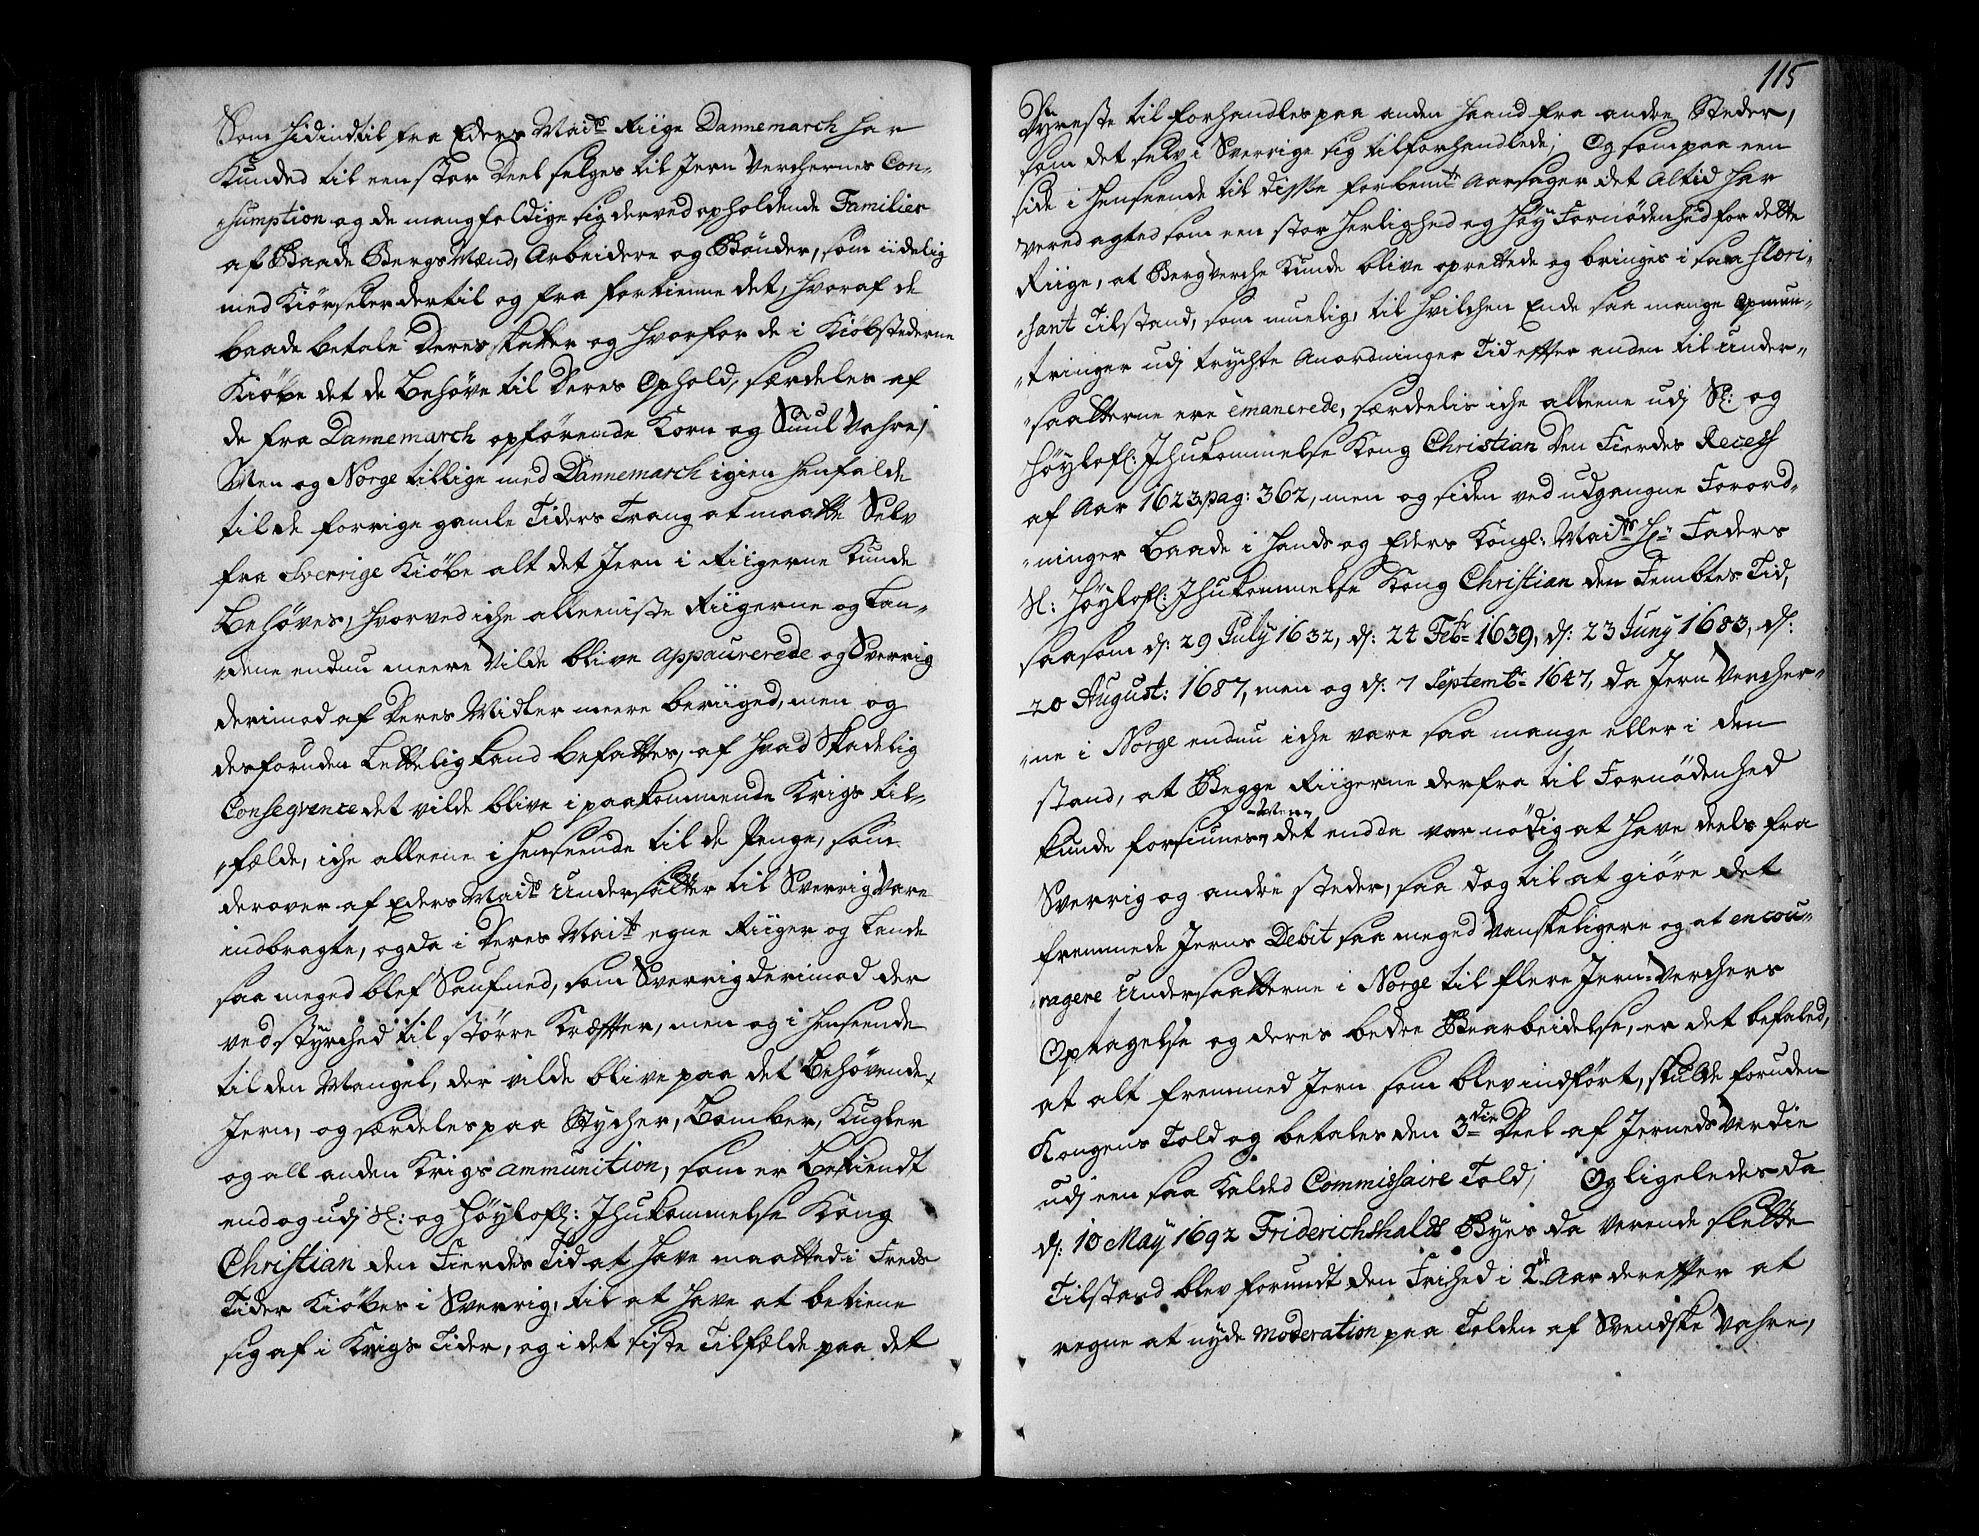 Som hidindtil fra Eders Maits Riige Dannemarch har
Kunded til een stor Deel selges til Jern Verchernes Con-
sumption og de mangfoldige sig derved opholdende Familier
af Baade BergsMænd, Arbeidere og Bønder, som iidelig
med Kiørseler dertil og fra fortienne det, hvoraf de
baade betale Deres skatter og hvorfor de i Kiøbstederne
Kiøbe det de Behøve til Deres Ophold, særdeles af
de fra Dannemarch opførende Korn og Suul Vahre;
Men og Norge tillige med Dannemarch igien henfalde
til de forrige gamle Tiders Trang at maatte Selv
fra Sverrige Kiøbe alt det Jern i Riigerne Kunde
Behøves, hvorved iche alleeniste Riigerne og Lan-
dene endnu meere Vilde blive appaurerede og Sverrig
derimod af Deres Midler meere beriiged, men og
desforuden Lettelig kand befattes, af hvad Skadelig
Conseqvence det vilde blive i paakommende Krigs til-
fælde, iche alleene i henseende til de Penge, som
derover af Eders Maits Undersaatter til Sverrig Vare
indbragte, og da i Deres Maits egne Riiger og Lande
saa meged blef Saufned, som Sverrig derimod der
ved styrched til større Kræffter, men og i henseende
til den Mangel, der vilde blive paa det Behøvende
Jern, og særdeles paa Stycher, Bomber, Kugler
og all anden Krigs ammunition, som er bekiendt
end og udj Sl: og Høylofl: Ihukommelse Kong
Christian den Fierdes Tid at have maatted i Freds
Tider Kiøbes i Sverrig, til at have at betiene
sig af i Krigs Tider, og i det siste Tilfælde paa det
115
Dyreste til forhandles paa anden haand fra andre Steder,
som det selv i Sverrige sig tilforhandlede; Og som paa een
side i henseende til disse forbemte Aarsager det Altid har
vered agted som een stor herlighed og høy Fornødenhed for dette
Riige, at Bergverche Kunde blive oprettede og bringes i saa flori-
sant Tilstand, som muelig, til hvilchen Ende saa mange Opmun-
tringer udj trychte Anordninger Tid effter anden til Under-
saatterne ere emanerede, særdeelis iche alleene udj Sl: og
Høylofl: Ihukommelse Kong Christian den Fierdes Recess
af Aar 1623 pag: 362, men og siden ved udgangne Forord-
ninger Baade i hands og Eders Kongl: Maits Hr Faders
Sl: Høylofl: Ihukommelse Kong Christian den Fembtes Tid,
saasom d: 29 July 1632, d: 24 Febr 1639, d: 23 Juny 1683, d:
20 August: 1687, men og d: 7 Septembr 1647, da Jern Vercher-
ne i Norge endnu iche vare saa mange eller i den
stand, at Begge Riigerne derfra til Fornødenhed
kunde forsiunes, Men det endda var nødig at have deels fra
Sverrig og andre steder, saa dog til at giøre det
fremmede Jerns Debit saa meged Vanskeligere og at encou-
ragere Undersaatterne i Norge til flere Jern-Verchers
Optagelse og deres bedre Bearbeidelse, er det befaled,
at alt fremmed Jern som blev indført, skulde foruden
Kongens Told og betales den 3die Deel af Jerneds Verdie
udj een saa Kalded Commissaire Told; Og ligeledes da
d: 10 May 1692 Friderichshalds Byes da verende slette
Tilstand blev forundt den Frihed i 2de Aar dereffter at
regne at nyde Moderation paa Tolden af Svendske Vahre,